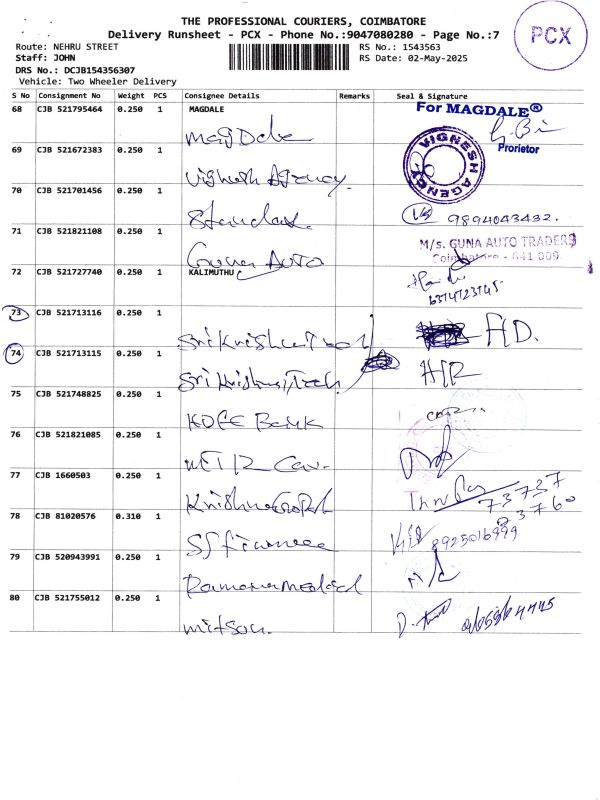 THE PROFESSIONAL COURIERS, COIMBATORE
Delivery Runsheet - PCX - Phone No.:9047080280 - Page No.:7
PCX
Route: NEHRU STREET
RS No.: 1543563
Staff: JOHN
RS Date: 02-May-2025
DRS No.: DCJB154356307
Vehicle: Two Wheeler Delivery
S No Consignment No Weight PCS Consignee Details Remarks Seal & Signature
68 CJB 521795464 0.250 1 MAGDALE
MagDale
For MAGDALE®
Prorietor
69 CJB 521672383 0.250 1
Vighnesh Agency
VIGNESH AGENCY
70 CJB 521701456 0.250 1
9894043432.
71 CJB 521821108 0.250 1
Guna Auto
M/s. GUNA AUTO TRADERS
Coimbatore - 641 009.
72 CJB 521727740 0.250 1 KALIMUTHU
6374723745
73 CJB 521713116 0.250 1
Sri Krishna Tech
74 CJB 521713115 0.250 1
Sri Krishna Tech
75 CJB 521748825 0.250 1
Bank
76 CJB 521821085 0.250 1
77 CJB 1660503 0.250 1
73727
78 CJB 81020576 0.310 1
SS finance
8925016999
79 CJB 520943991 0.250 1
Ramana medical
80 CJB 521755012 0.250 1
mitsou.